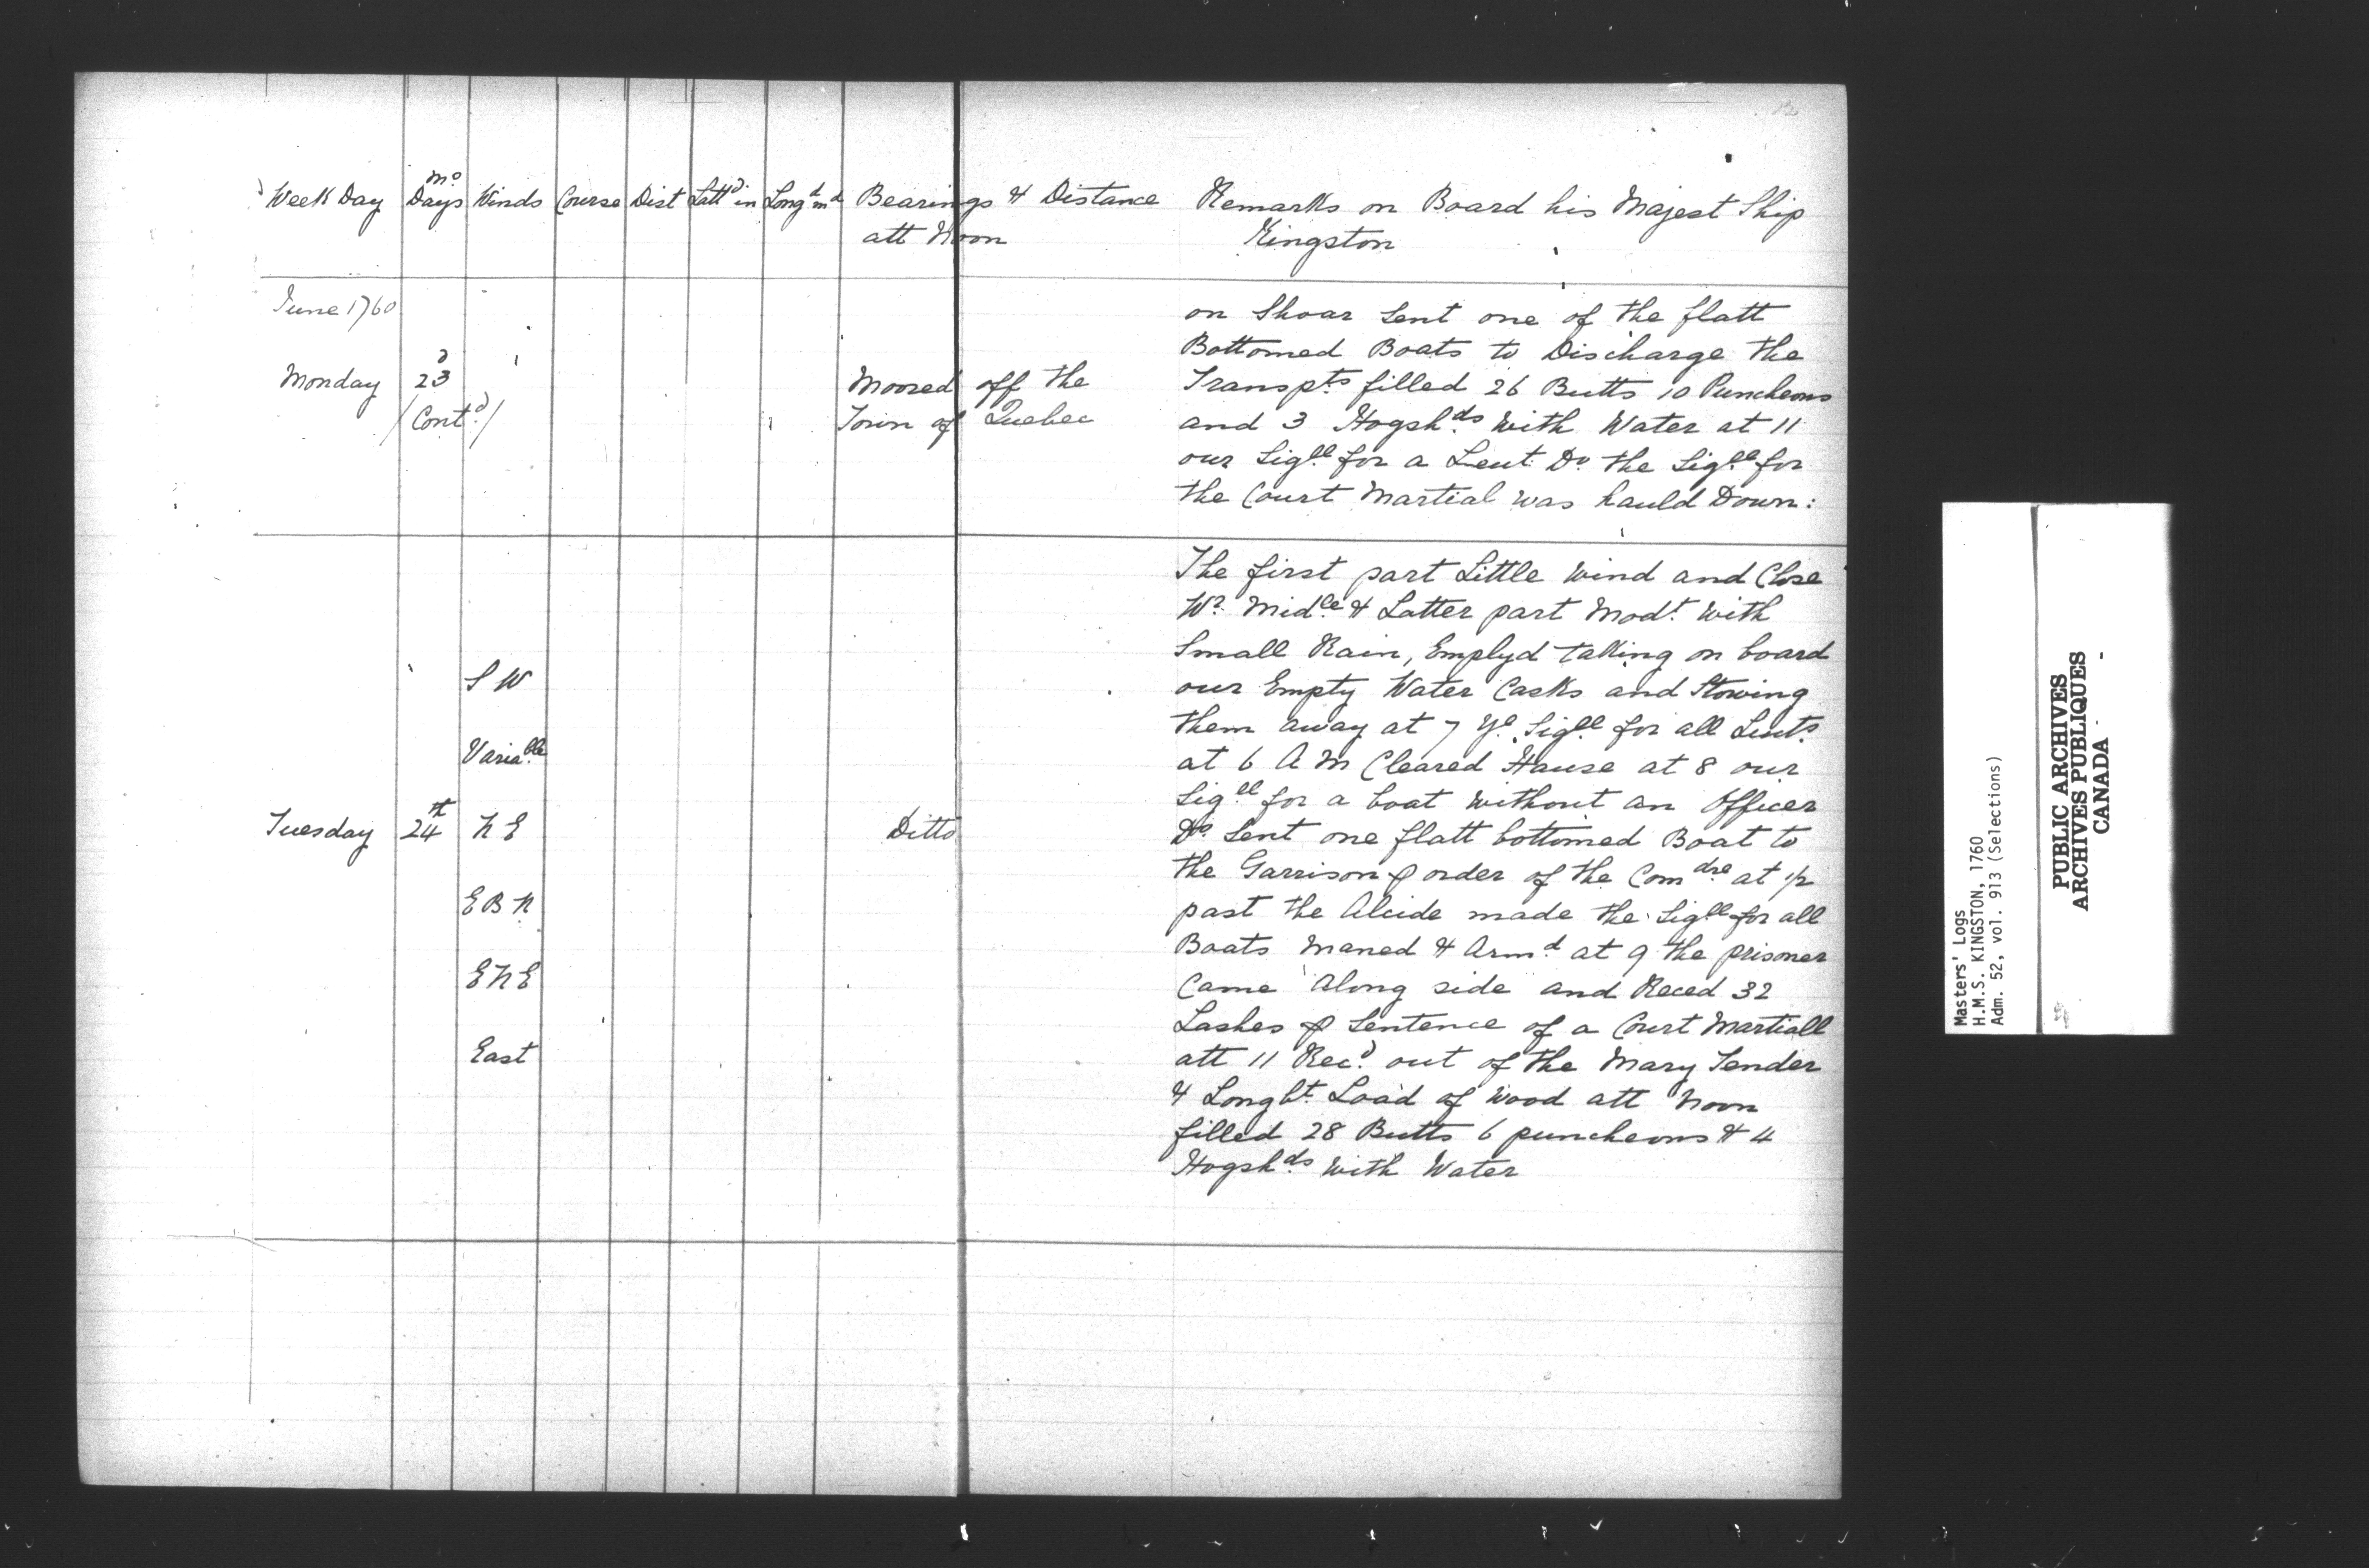 Week Day Mo Days Winds Course Dist Lattd in Longd md Bearings & Distance att Noon
Remarks on Board his Majest Ship
Kingston
June 1760
Monday 23d
(Contd)
Moored off the
Town of Quebec
on Shoar Sent one of the flatt
Bottomed Boats to Discharge the
Transpts filled 26 Butts 10 Puncheons
and 3 Hogshds with Water at 11
our Sigll for a Leut Do the Sigll for
the Court Martial was hauld Down:
The first part Little Wind and Close
Wr Midle & Latter part Modt with
Small Rain, Emplyd taking on board
our Empty Water Casks and Stowing
them away at 7 ye Sigll for all Leuts
at 6 A M Cleared Hause at 8 our
Sigll for a boat without an Officer
Do Sent one flatt bottomed Boat to
the Garrison ⅌ order of the Comdre at 1/2
past the Alcide made the Sigll for all
Boats maned & Armd at 9 the prisoner
Came along side and Reced 32
Lashes ⅌ Sentence of a Court Martiall
att 11 Recd out of the Mary Tender
& Longbt Load of Wood att Noon
filled 28 Butts 6 puncheons & 4
Hogshds with Water
S W
Variable
Tuesday 24th N E Ditto
E B N
E N E
East
Masters' Logs
H.M.S. KINGSTON, 1760
Adm. 52, vol. 913 (Selections)
PUBLIC ARCHIVES
ARCHIVES PUBLIQUES
CANADA